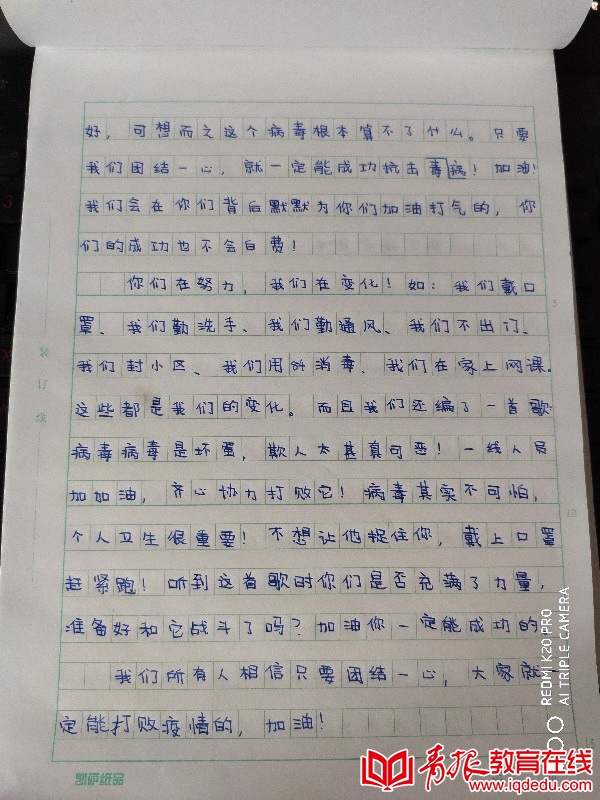 好，可想而之这个病毒根本算不了什么。只要
我们团结一心，就一定能成功抗击毒病！加油！
我们会在你们背后默默为你们加油打气的，你
们的成功也不会白费！
你们在努力，我们在变化！如：我们戴口
罩、我们勤洗手、我们勤通风、我们不出门、
我们封小区、我们用84消毒、我们在家上网课。
这些都是我们的变化。而且我们还编了一首歌：
病毒病毒是坏蛋，欺人太甚真可恶！一线人员
加加油，齐心协力打败它！病毒其实不可怕，
个人卫生很重要！不想让他捉住你，戴上口罩
赶紧跑！听到这首歌时你们是否充满了力量，
准备好和它战斗了吗？加油你一定能成功的
我们所有人相信只要团结一心，大家就一
定能打败疫情的，加油！
装订线
5
10
15
凯萨纸品
REDMI K20 PRO
AI TRIPLE CAMERA
青报教育在线
www.iqdedu.com